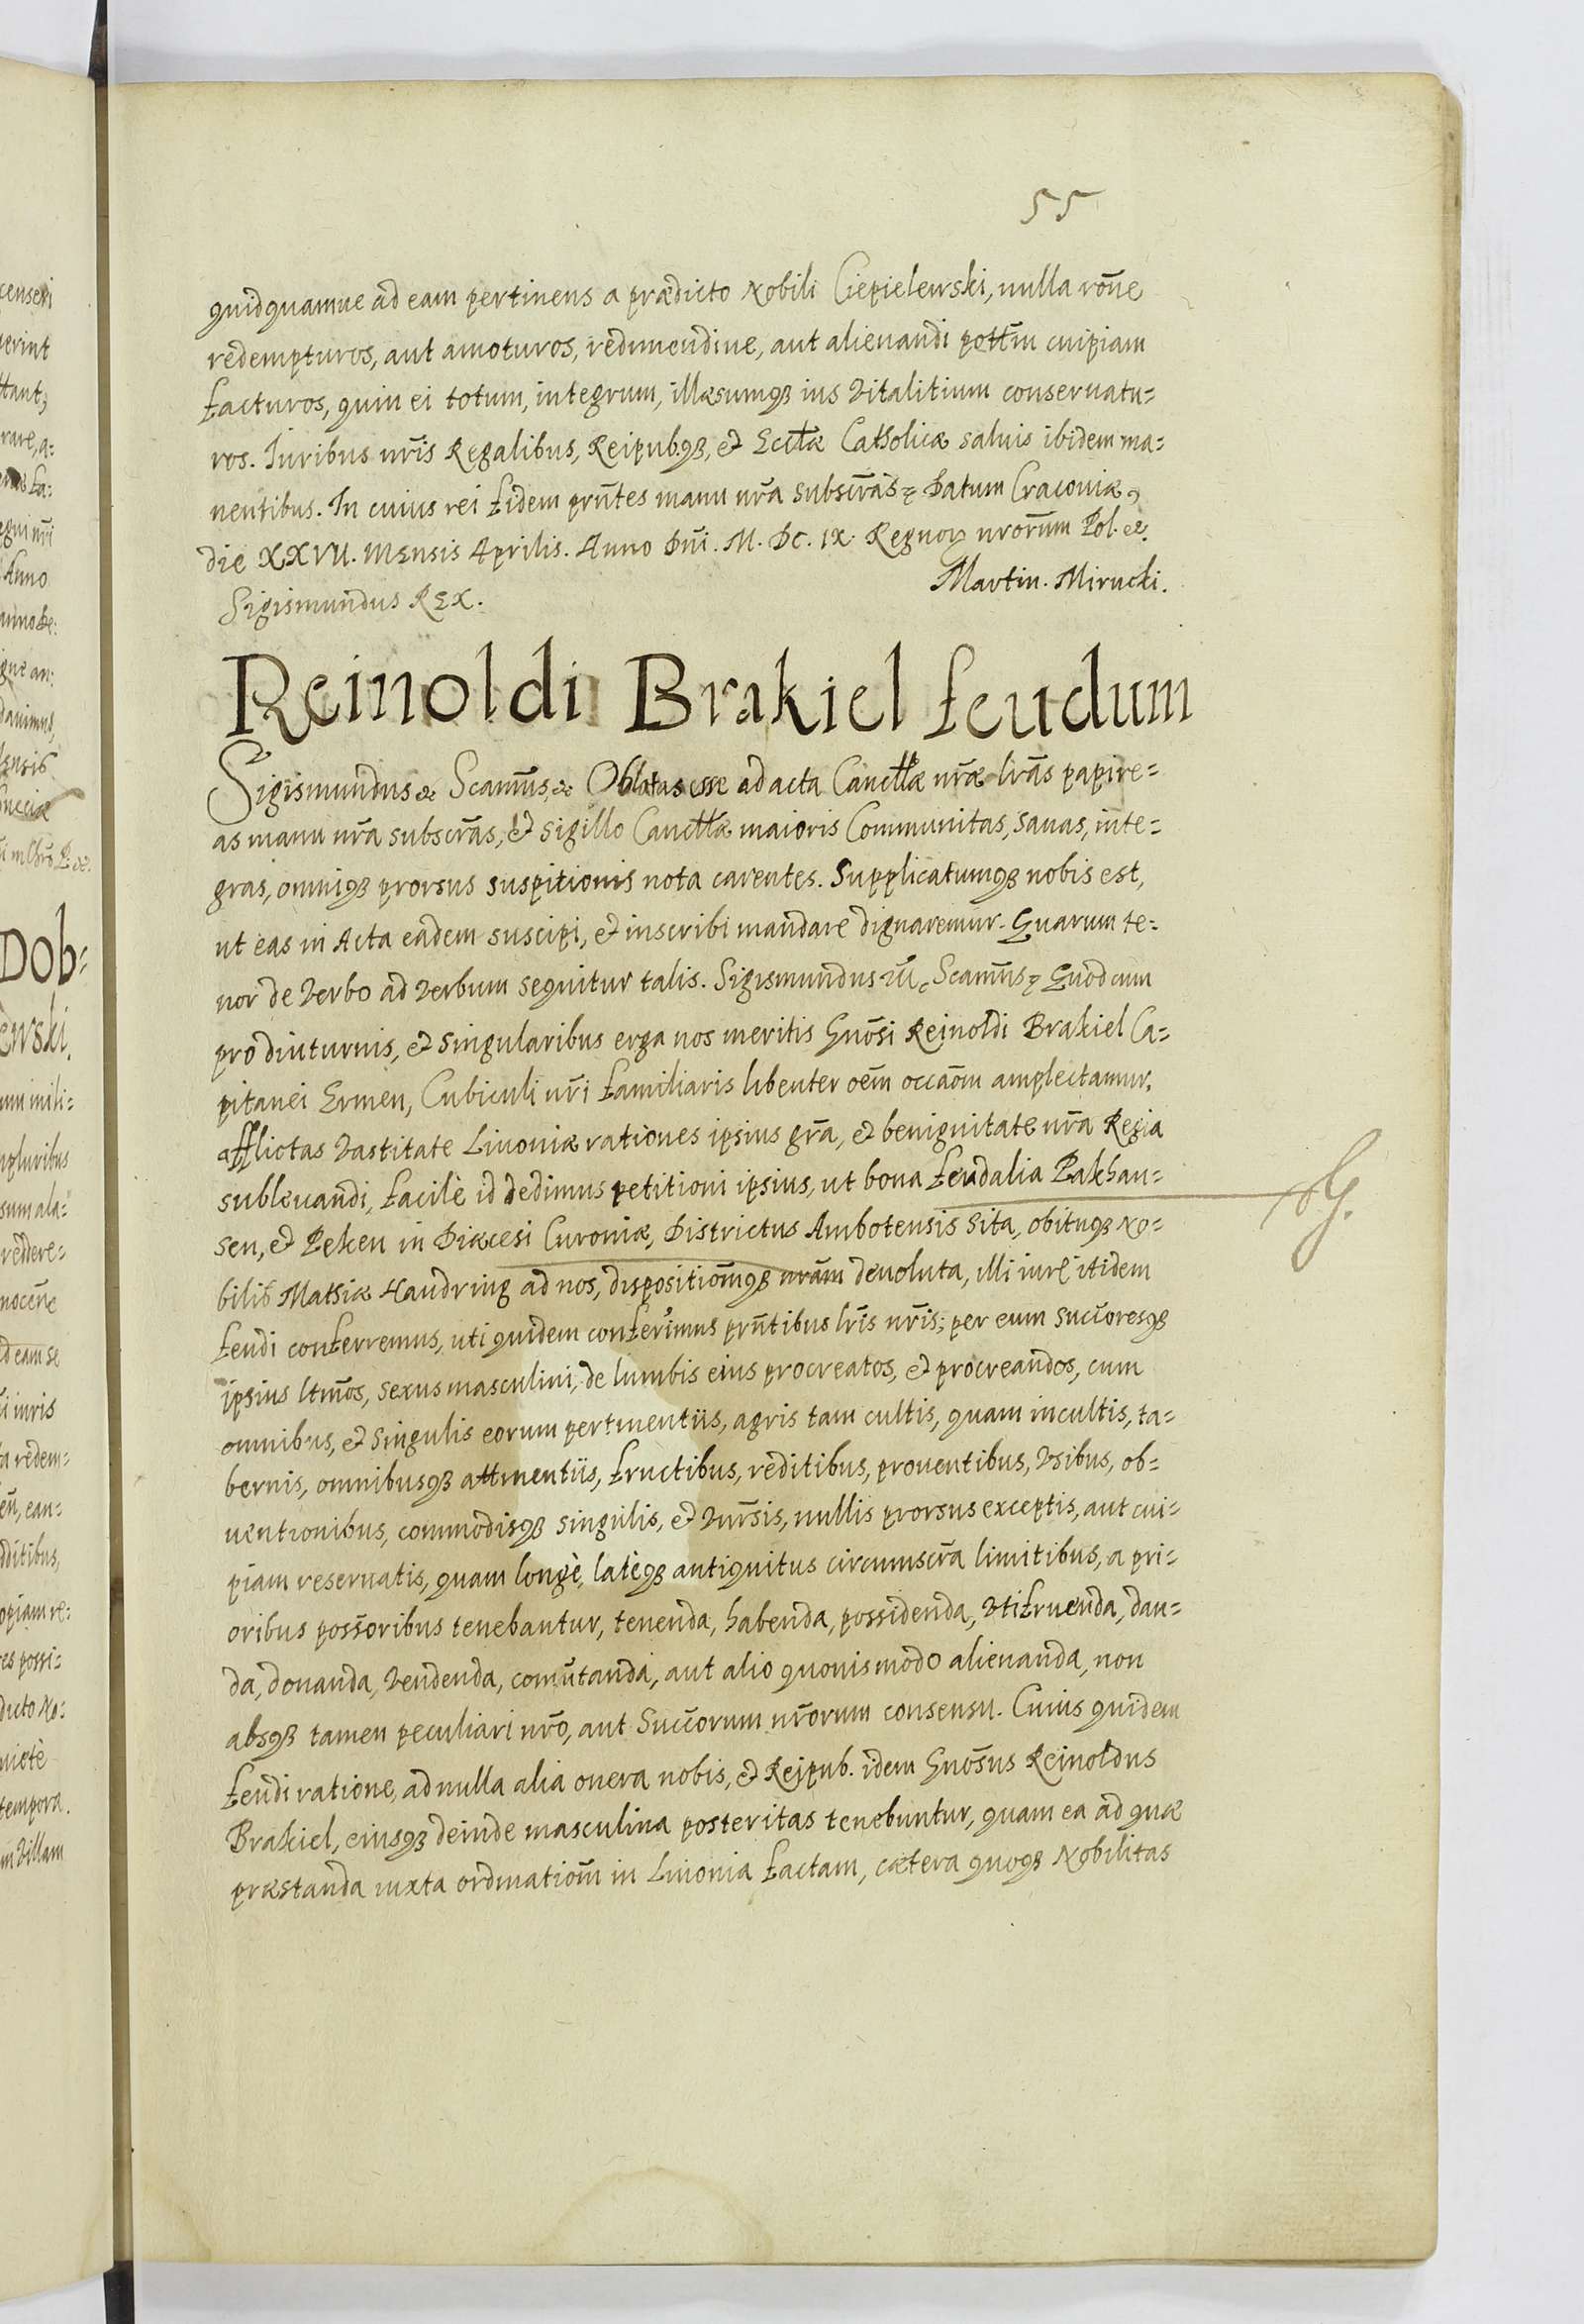 55
quidquamue ad eam pertinens a prædicto Nobili Ciepielewski, nulla rõne
redempturos, aut amoturos, redimendiue, aut alienandi potãtem cuipiam
facturos, quin ei totum, integrum, illæsumqȝ ius vitalitium conseruatu=
ros. Iuribus nr̃is Regalibus, Reipubqȝ, et Eccłæ Catholicæ saluis ibidem ma=
nentibus. In cuius rei fidem pnñtes manu nr̃a subscr̃as Datum Cracoviæ,
die XXVII. Mensis Aprilis. Anno Dñi. M. DC. IX. Regnoꝝ nrõrum Pol. etc.
Martin. Mirucki.
Sigismundus REX.
Reinoldi Brakiel feudum
Sigismundus etc Scamũs, etc Oblatas esse ad acta Cancłłæ nr̃æ lr̃as papire=
as manu nr̃a subscr̃as, et sigillo Cancłłæ maioris Communitas, sanas, inte=
gras, omniqȝ prorsus suspitionis nota carentes. Supplicatumqȝ nobis est,
ut eas in Acta eadem suscipi, et inscribi mandare dignaremur. Quarum te=
nor de verbo ad verbum sequitur talis. Sigismundus Scamũs Quod cum
pro diuturnis, et singularibus erga nos meritis Gnõsi Reinoldi Brakiel Ca=
pitanei Ermen, Cubiculi nr̃i familiaris libenter oẽm occaõm amplectamur,
afflictas vastitate Liuoniæ rationes ipsius gr̃a, et benignitate nr̃a Regia
subleuandi, facilè id dedimus petitioni ipsius, ut bona feudalia Pakhau=
sen, et Peken in Diæcesi Curoniæ, Districtus Ambotensis sita, obituqȝ No=
bilis Mathiæ Haudring ad nos, dispositiom̃qȝ nrãm deuoluta, illi iure itidem
feudi conferremus, uti quidem conferimus pnñtibus lr̃is nr̃is; per eum succ̃oresqȝ
ipsius ltm̃os, sexus masculini, de lumbis eius procreatos, et procreandos, cum
omnibus, et singulis eorum pertinentiis, agris tam cultis, quam incultis, ta=
bernis, omnibusqȝ attinentiis, fructibus, reditibus, prouentibus, vsibus, ob=
uentionibus, commodisqȝ singulis, et vnir̃sis, nullis prorsus exceptis, aut cui=
piam reseruatis, quam longè, latèqȝ antiquitus circumscr̃a limitibus, a pri=
oribus poss̃oribus tenebantur, tenenda, habenda, possidenda, vtifruenda, dan=
da, donanda, vendenda, com̃utanda, aut alio quouismodo alienanda, non
absqȝ tamen peculiari nrõ, aut Succ̃orum nrõrum consensu. Cuius quidem
feudi ratione, ad nulla alia onera nobis, et Reipub. idem Gnõsus Reinoldus
Brakiel, eiusqȝ deinde masculina posteritas tenebuntur, quam ea ad quæ
præstanda iuxta ordinatiom̃ in Liuonia factam, cætera quoqȝ Nobilitas